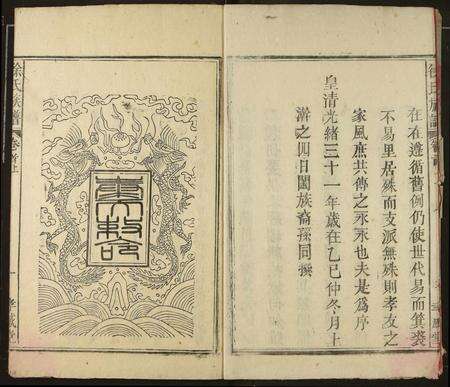 在在遵循舊例仍使世代易而箕裘
不易里居殊而支派無殊則孝友之
家風庶共傳之永永也夫是為序
皇清光緒三十一年歲在乙巳仲冬月上
澣之四日闔族裔孫同撰
徐氏族譜
卷首上
一